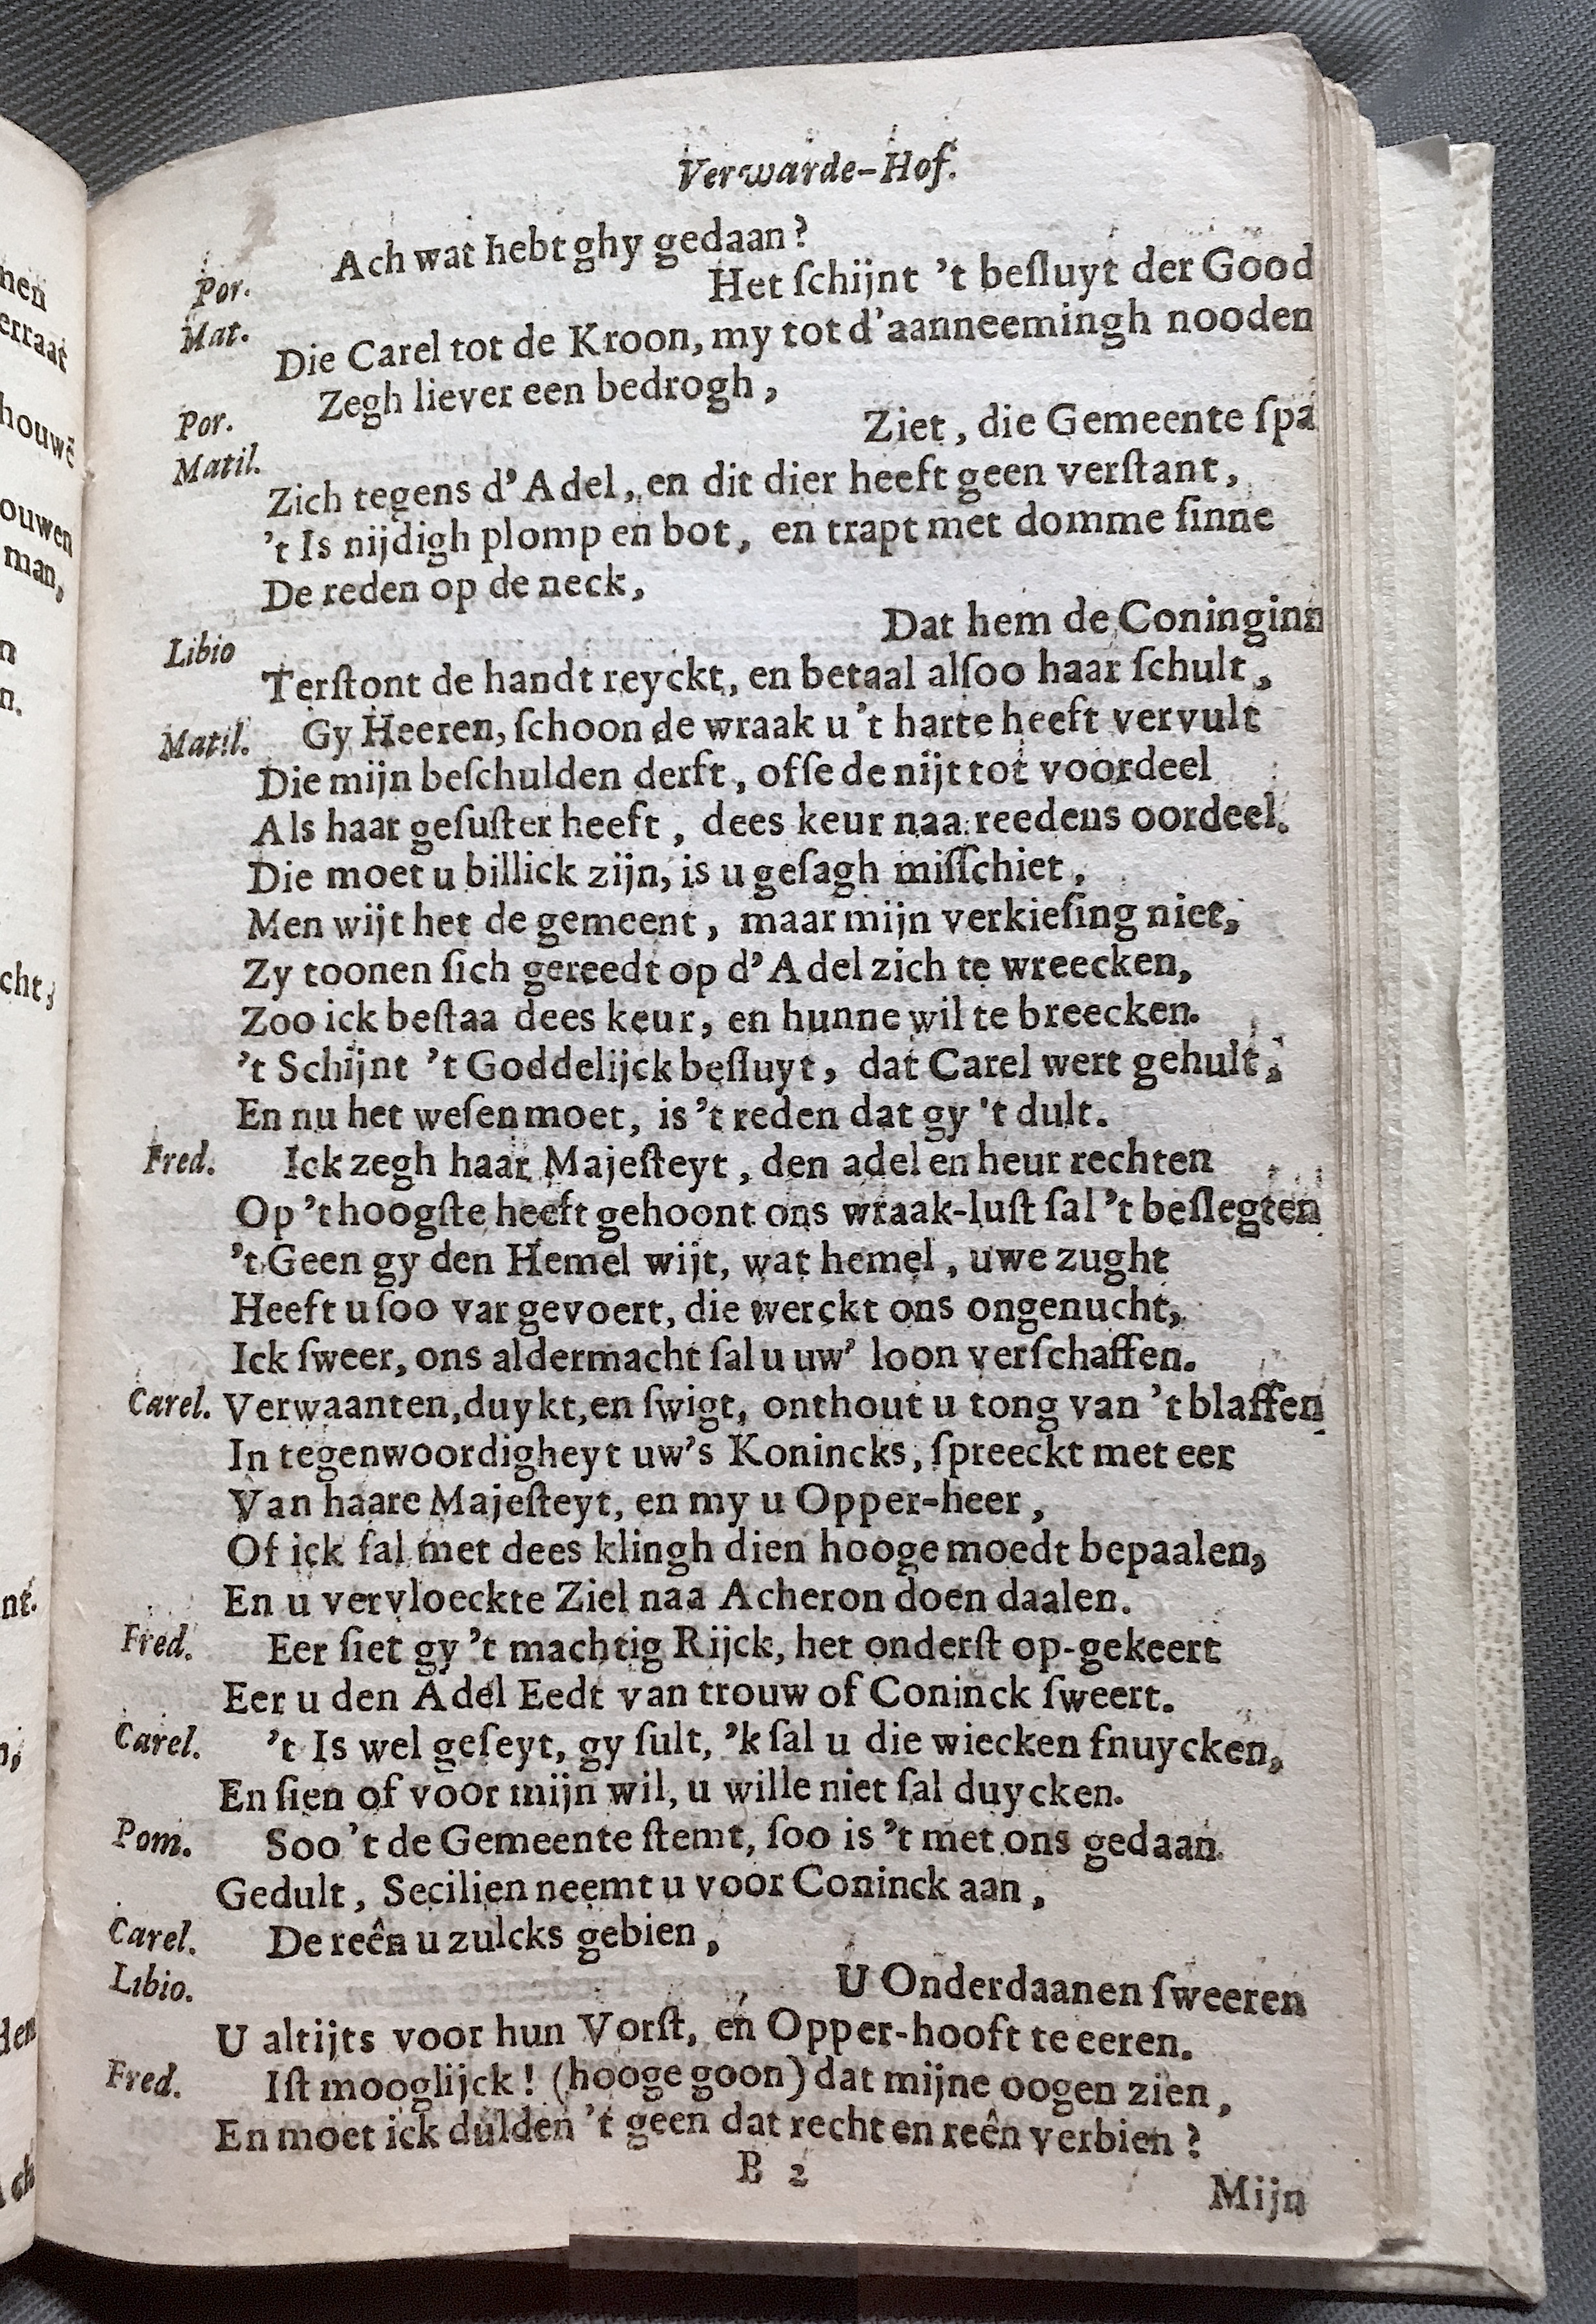 nen
erraat
houwē
ouwen
man,
n
n.
cht,
nt.
n,
den
Ach
Verwarde-Hof.
Por. Ach wat hebt ghy gedaan?
Mat. Het ſchijnt 't beſluyt der Good
Die Carel tot de Kroon, my tot d'aanneemingh nooden
Por. Zegh liever een bedrogh,
Matil. Ziet, die Gemeente ſpa
Zich tegens d'Adel, en dit dier heeft geen verſtant,
't Is nijdigh plomp en bot, en trapt met domme ſinne
De reden op de neck,
Libio Dat hem de Coninginn
Terſtont de handt reyckt, en betaal alſoo haar ſchult,
Matil. Gy Heeren, ſchoon de wraak u 't harte heeft vervult
Die mijn beſchulden derft, offe de nijt tot voordeel
Als haar geſuſter heeft, dees keur naa reedens oordeel.
Die moet u billick zijn, is u geſagh miſſchiet,
Men wijt het de gemeent, maar mijn verkieſing niet,
Zy toonen ſich gereedt op d'Adel zich te wreecken,
Zoo ick beſtaa dees keur, en hunne wil te breecken.
't Schijnt 't Goddelijck beſluyt, dat Carel wert gehult,
En nu het weſen moet, is 't reden dat gy 't dult.
Fred. Ick zegh haar Majeſteyt, den adel en heur rechten
Op 't hoogſte heeft gehoont ons wraak-luſt ſal 't beſlegten
't Geen gy den Hemel wijt, wat hemel, uwe zught
Heeft u ſoo var gevoert, die werckt ons ongenucht,
Ick ſweer, ons aldermacht ſal u uw' loon verſchaffen.
Carel. Verwaanten, duykt, en ſwigt, onthout u tong van 't blaffen
In tegenwoordigheyt uw's Konincks, ſpreeckt met eer
Van haare Majeſteyt, en my u Opper-heer,
Of ick ſal met dees klingh dien hooge moedt bepaalen,
En u vervloeckte Ziel naa Acheron doen daalen.
Fred. Eer ſiet gy 't machtig Rijck, het onderſt op-gekeert
Eer u den Adel Eedt van trouw of Coninck ſweert.
Carel. 't Is wel geſeyt, gy ſult, 'k ſal u die wiecken fnuycken,
En ſien of voor mijn wil, u wille niet ſal duycken.
Pom. Soo 't de Gemeente ſtemt, ſoo is 't met ons gedaan
Gedult, Secilien neemt u voor Coninck aan,
Carel. De reên u zulcks gebien,
Libio. U Onderdaanen ſweeren
U altijts voor hun Vorſt, en Opper-hooft te eeren.
Fred. Iſt mooglijck! (hooge goon) dat mijne oogen zien,
En moet ick dulden 't geen dat recht en reên verbien?
B 2
Mijn